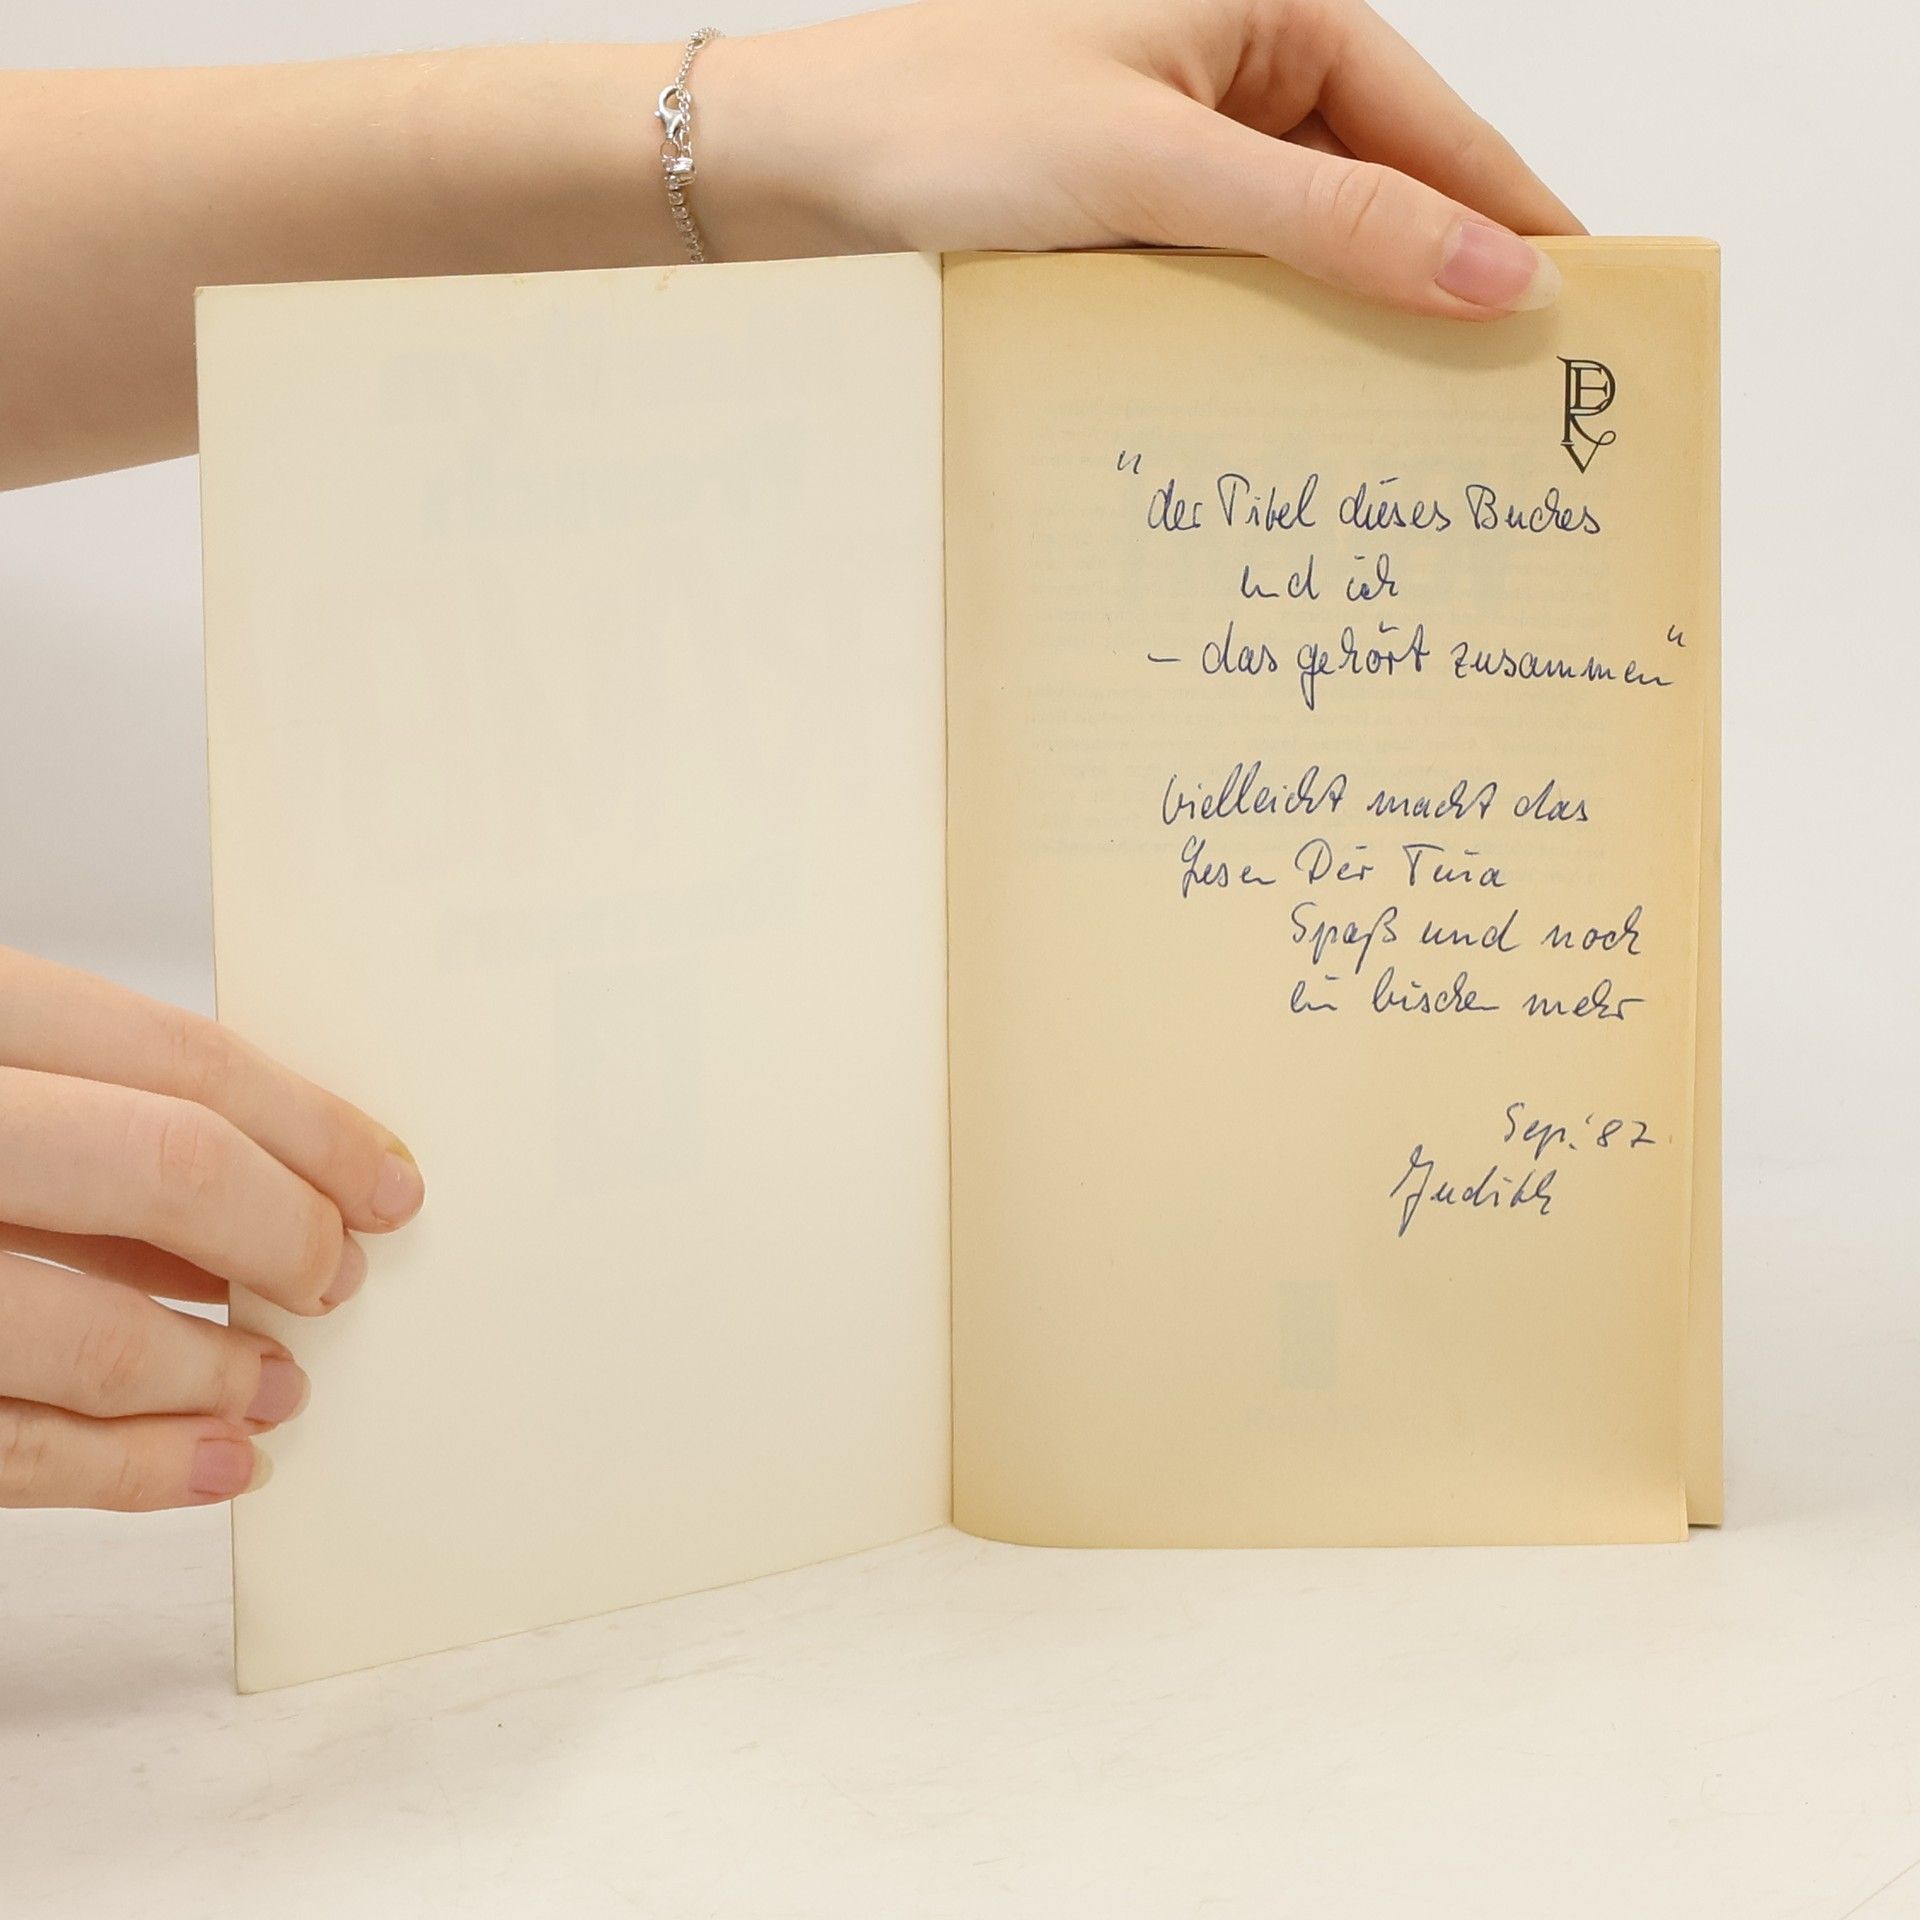 PERV
"der Titel dieses Buches
und ich
– das gehört zusammen"
vielleicht macht das
Lesen Dir Tina
Spaß und noch
ein bischen mehr
Sep. '87
Judith